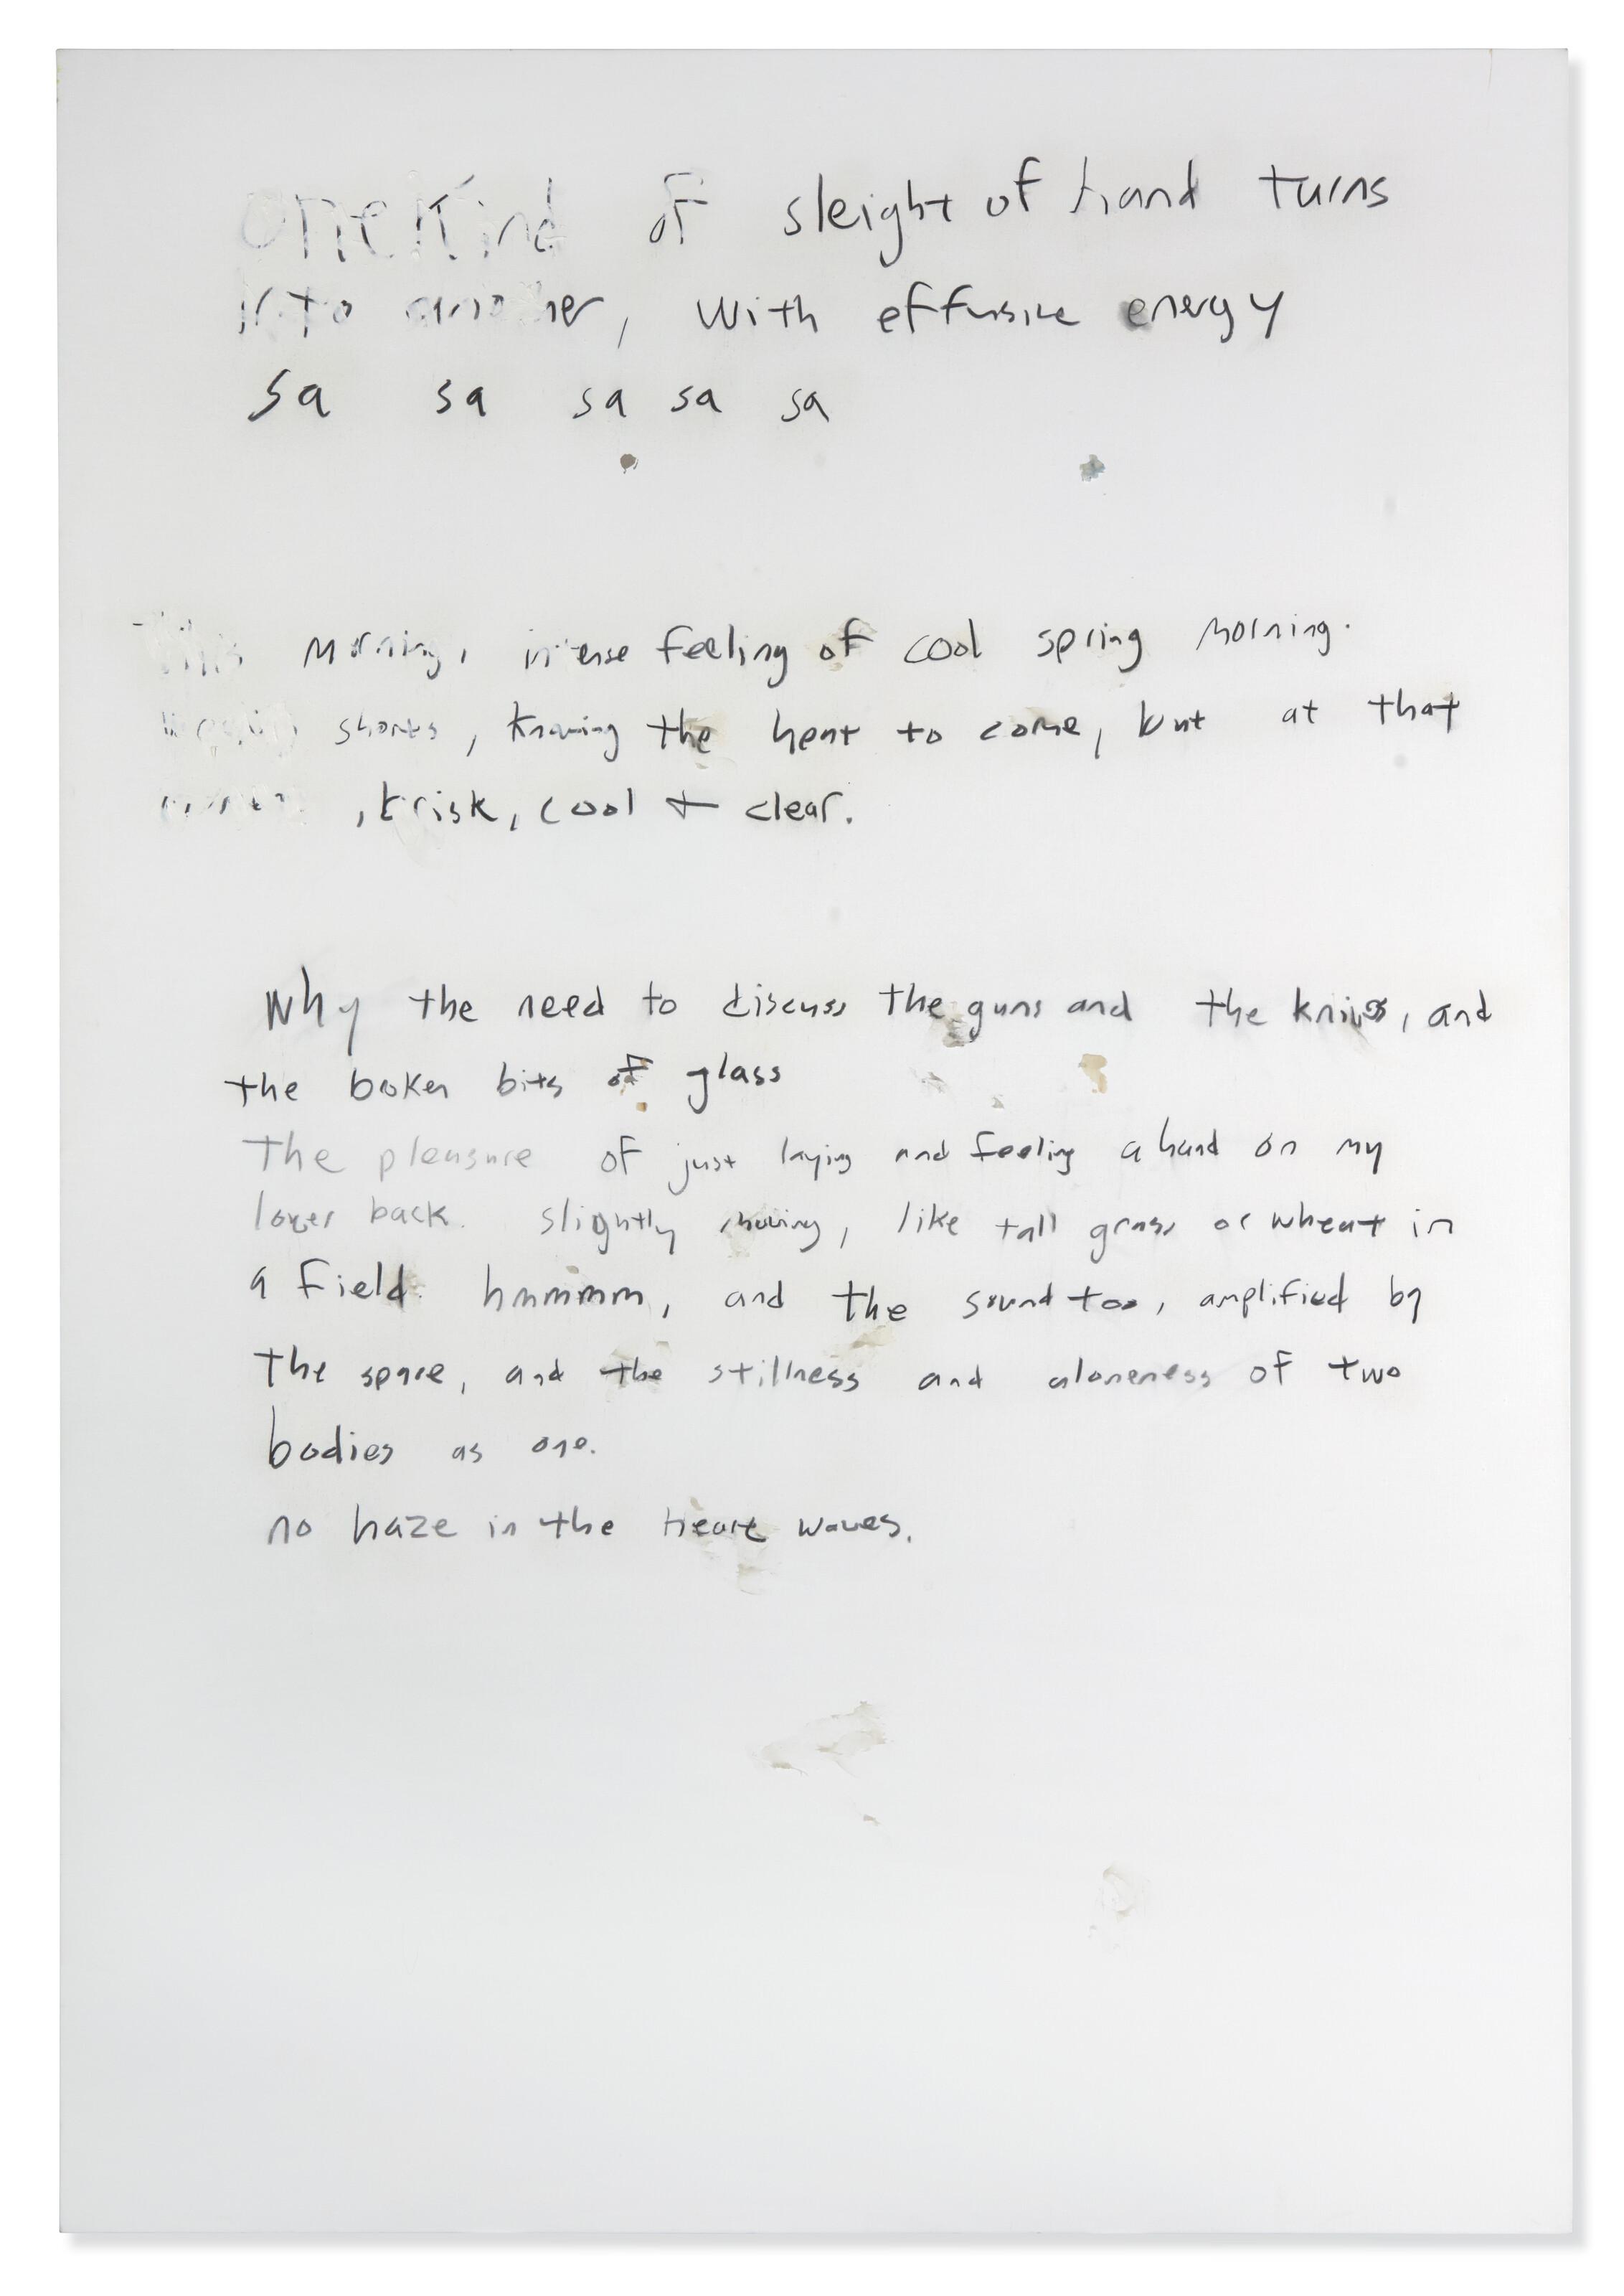 one kind of sleight of hand turns
into another, with effusive energy
sa sa sa sa sa
this morning, intense feeling of cool spring morning.
shorts, knowing the heat to come, but at that
moment, krisk, cool + clear.
Why the need to discuss the guns and the knives, and
the broken bits of glass
The pleasure of just laying and feeling a hand on my
lower back. slightly moving, like tall grass or wheat in
a field. hmmmmm, and the sound too, amplified by
the space, and the stillness and aloneness of two
bodies as one.
no haze in the heart waves.